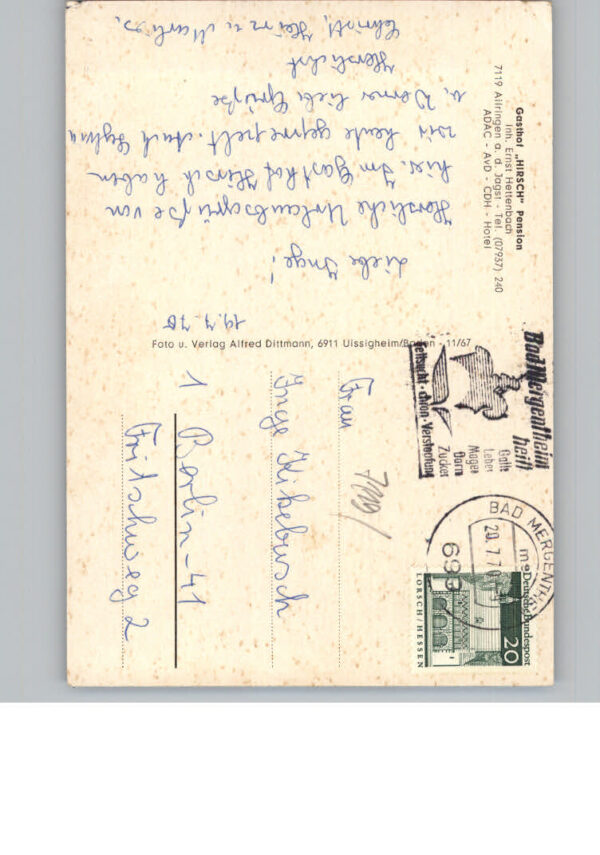 Gasthof „HIRSCH" Pension
Inh. Ernst Hettenbach
7119 Ailringen a. d. Jagst - Tel. (07937) 240
ADAC - AvD - CDH - Hotel
19.7.70
Liebe Inge!
Herzliche Urlaubsgrüße von
hier. Im Gasthof Hirsch haben
wir heute gespeist. Auch
u. Werner liebe Grüße
Herzlichst
Heinz u. Marlies,
Foto u. Verlag Alfred Dittmann, 6911 Uissigheim/Baden - 11/67
Bad Mergentheim
heilt
Galle
Leber
Magen
Darm
Zucker
Fettsucht · chron · Verstopfung
BAD MERGENTH
20.7.70
699
Deutsche Bundespost
20
LORSCH/HESSEN
Frau
Inge Kikebusch
1 Berlin-41
Fritschweg 2